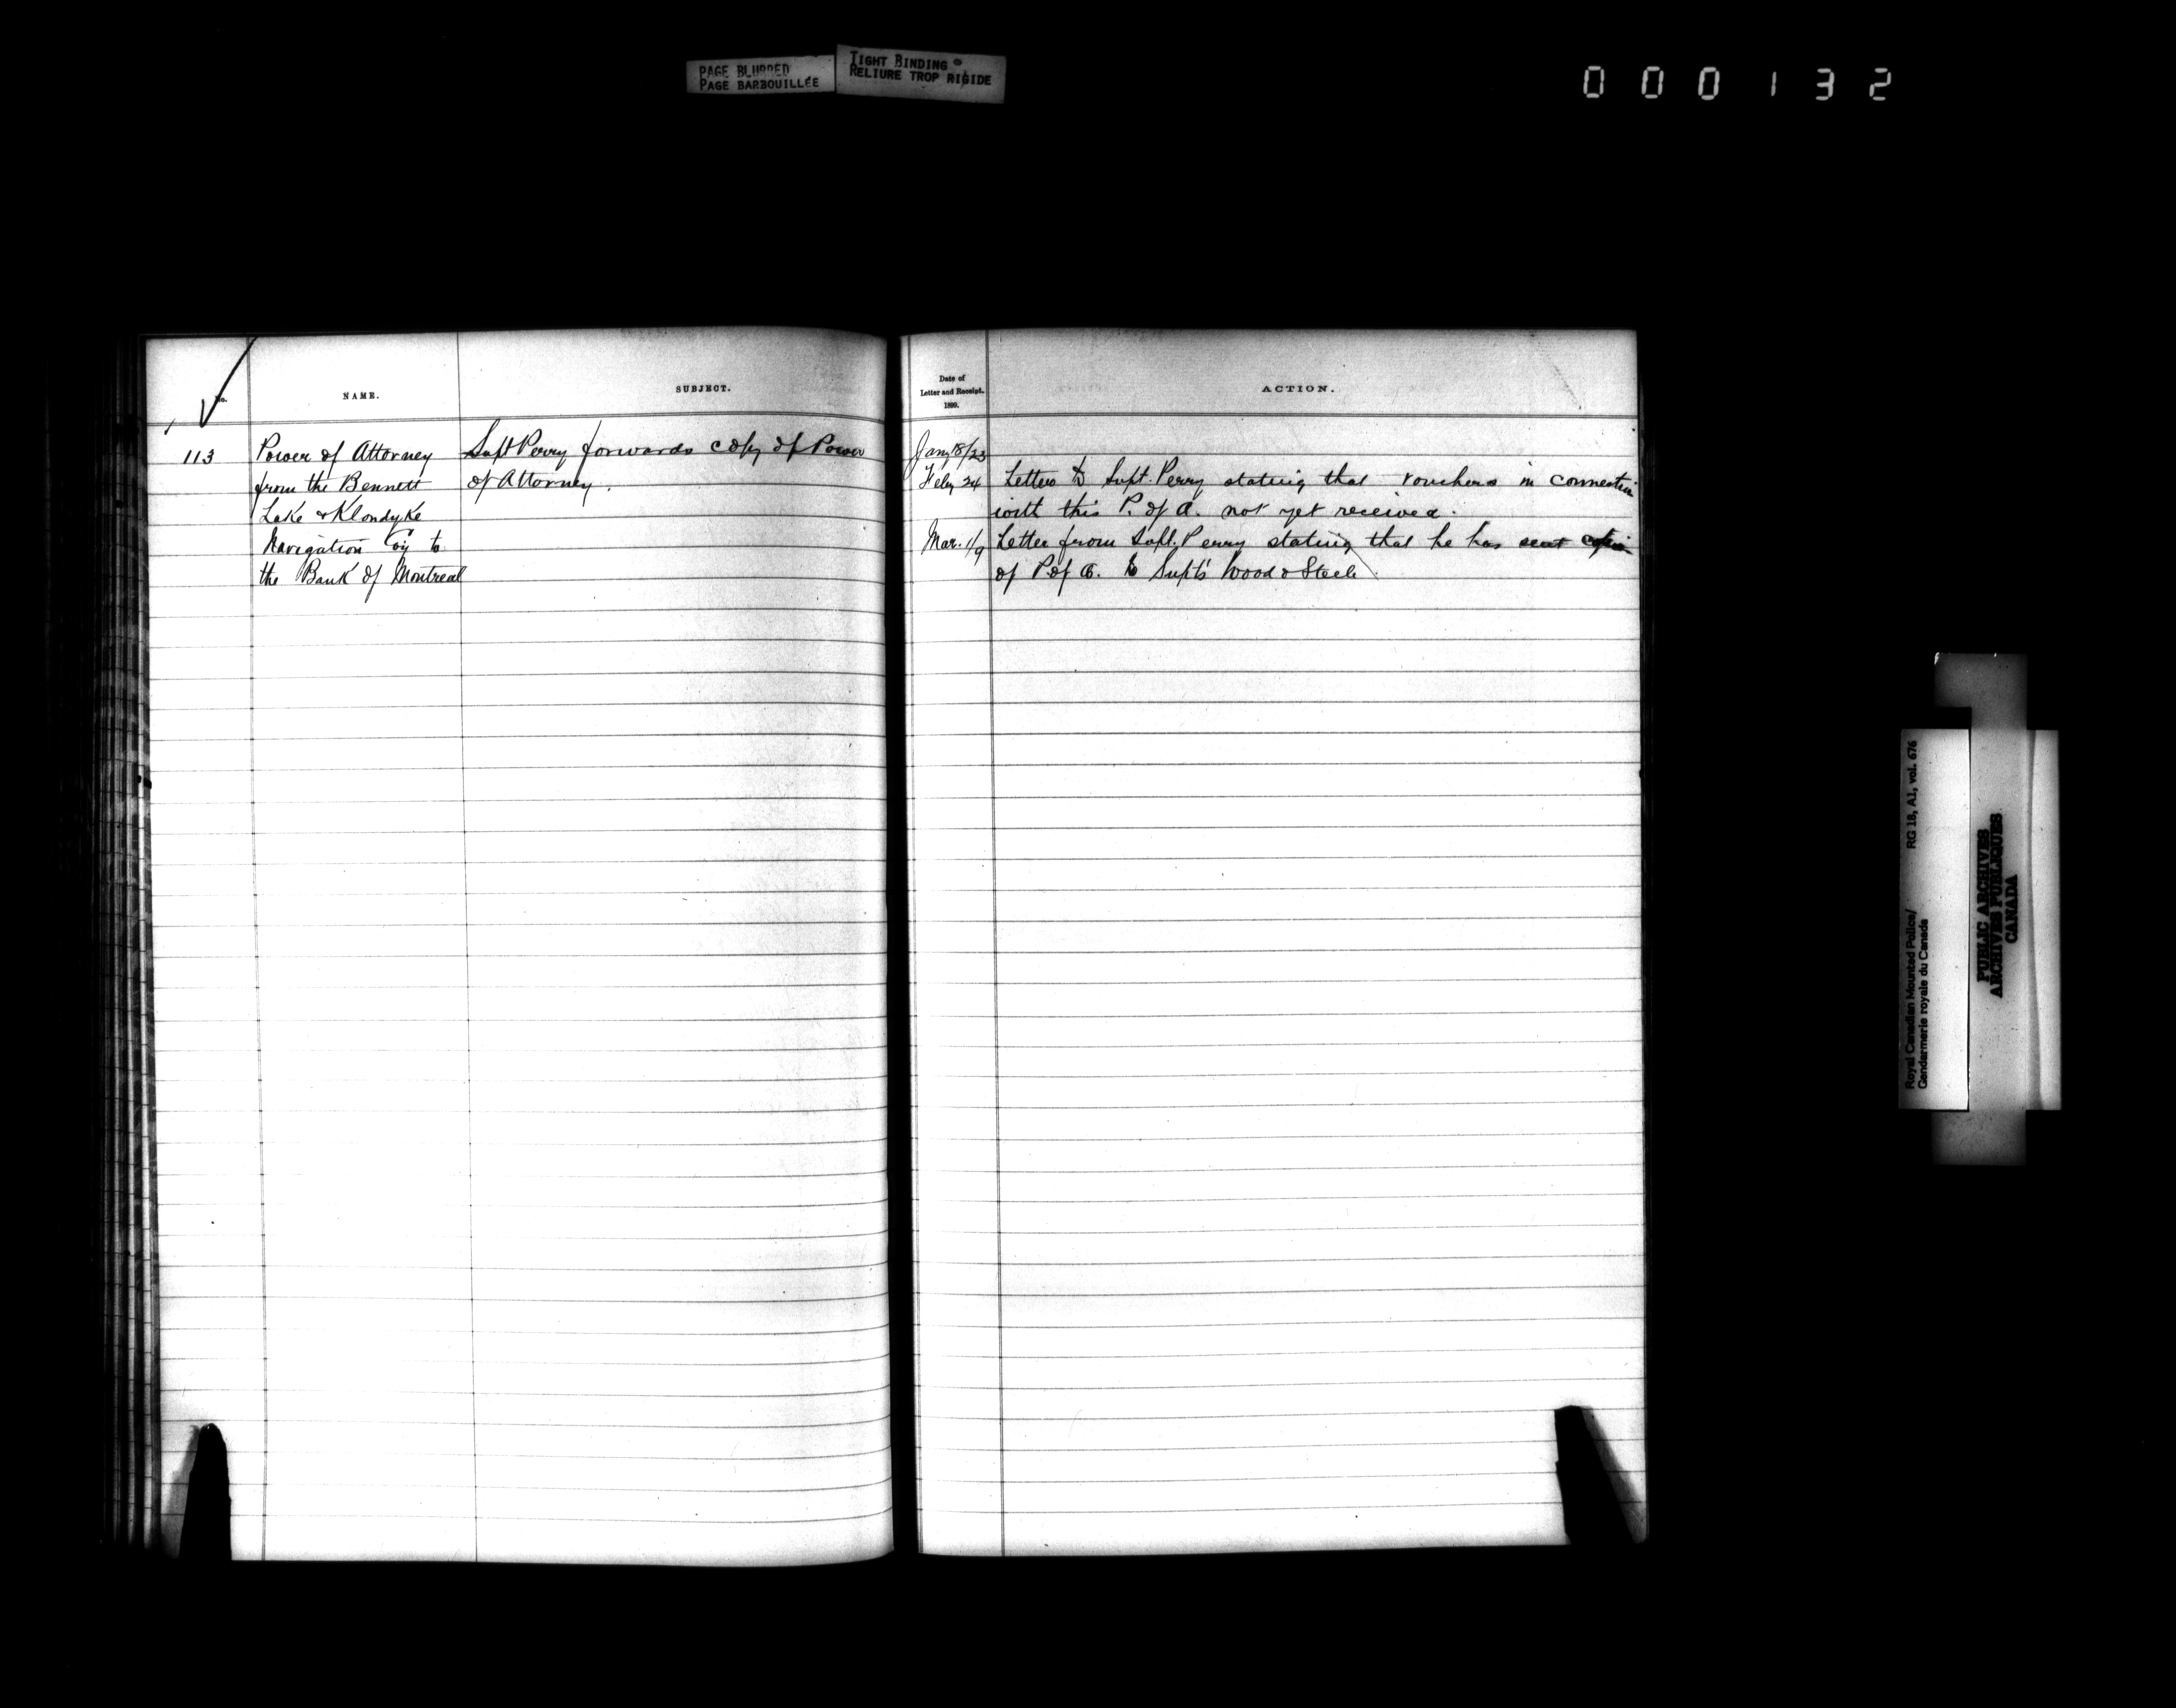 PAGE BLURRED
PAGE BARBOUILLÉE
TIGHT BINDING
RELIURE TROP RIGIDE
000132
No.
NAME.
SUBJECT.
113
Power of Attorney
from the Bennett
Lake & Klondyke
Navigation Coy to
the Bank of Montreal
Supt Perry forwards copy of Power
of Attorney.
Date of
Letter and Receipt.
1899.
ACTION.
Jany 18/23
Feby 24 Letters to Supt. Perry stating that vouchers in connection
with this P. of A. not yet received.
Mar. 1/9 Letter from Supt. Perry stating that he has sent copies
of P. of A. to Supts Wood & Steele
Royal Canadian Mounted Police/
Gendarmerie royale du Canada
RG 18, A1, vol. 676
PUBLIC ARCHIVES
ARCHIVES PUBLIQUES
CANADA